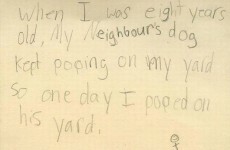 When I was eight years
old, My Neighbour's dog
kept poping on my yard
so one day I poped on
his yard.